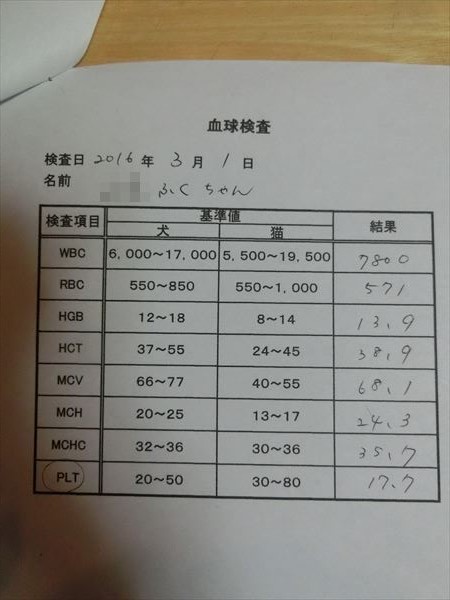 血球検査
検査日 2016 年 3 月 1 日
名前 ふくちゃん
検査項目 基準値 結果
犬 猫
WBC 6,000～17,000 5,500～19,500 7800
RBC 550～850 550～1,000 571
HGB 12～18 8～14 13.9
HCT 37～55 24～45 38.9
MCV 66～77 40～55 68.1
MCH 20～25 13～17 24.3
MCHC 32～36 30～36 35.7
PLT 20～50 30～80 17.7